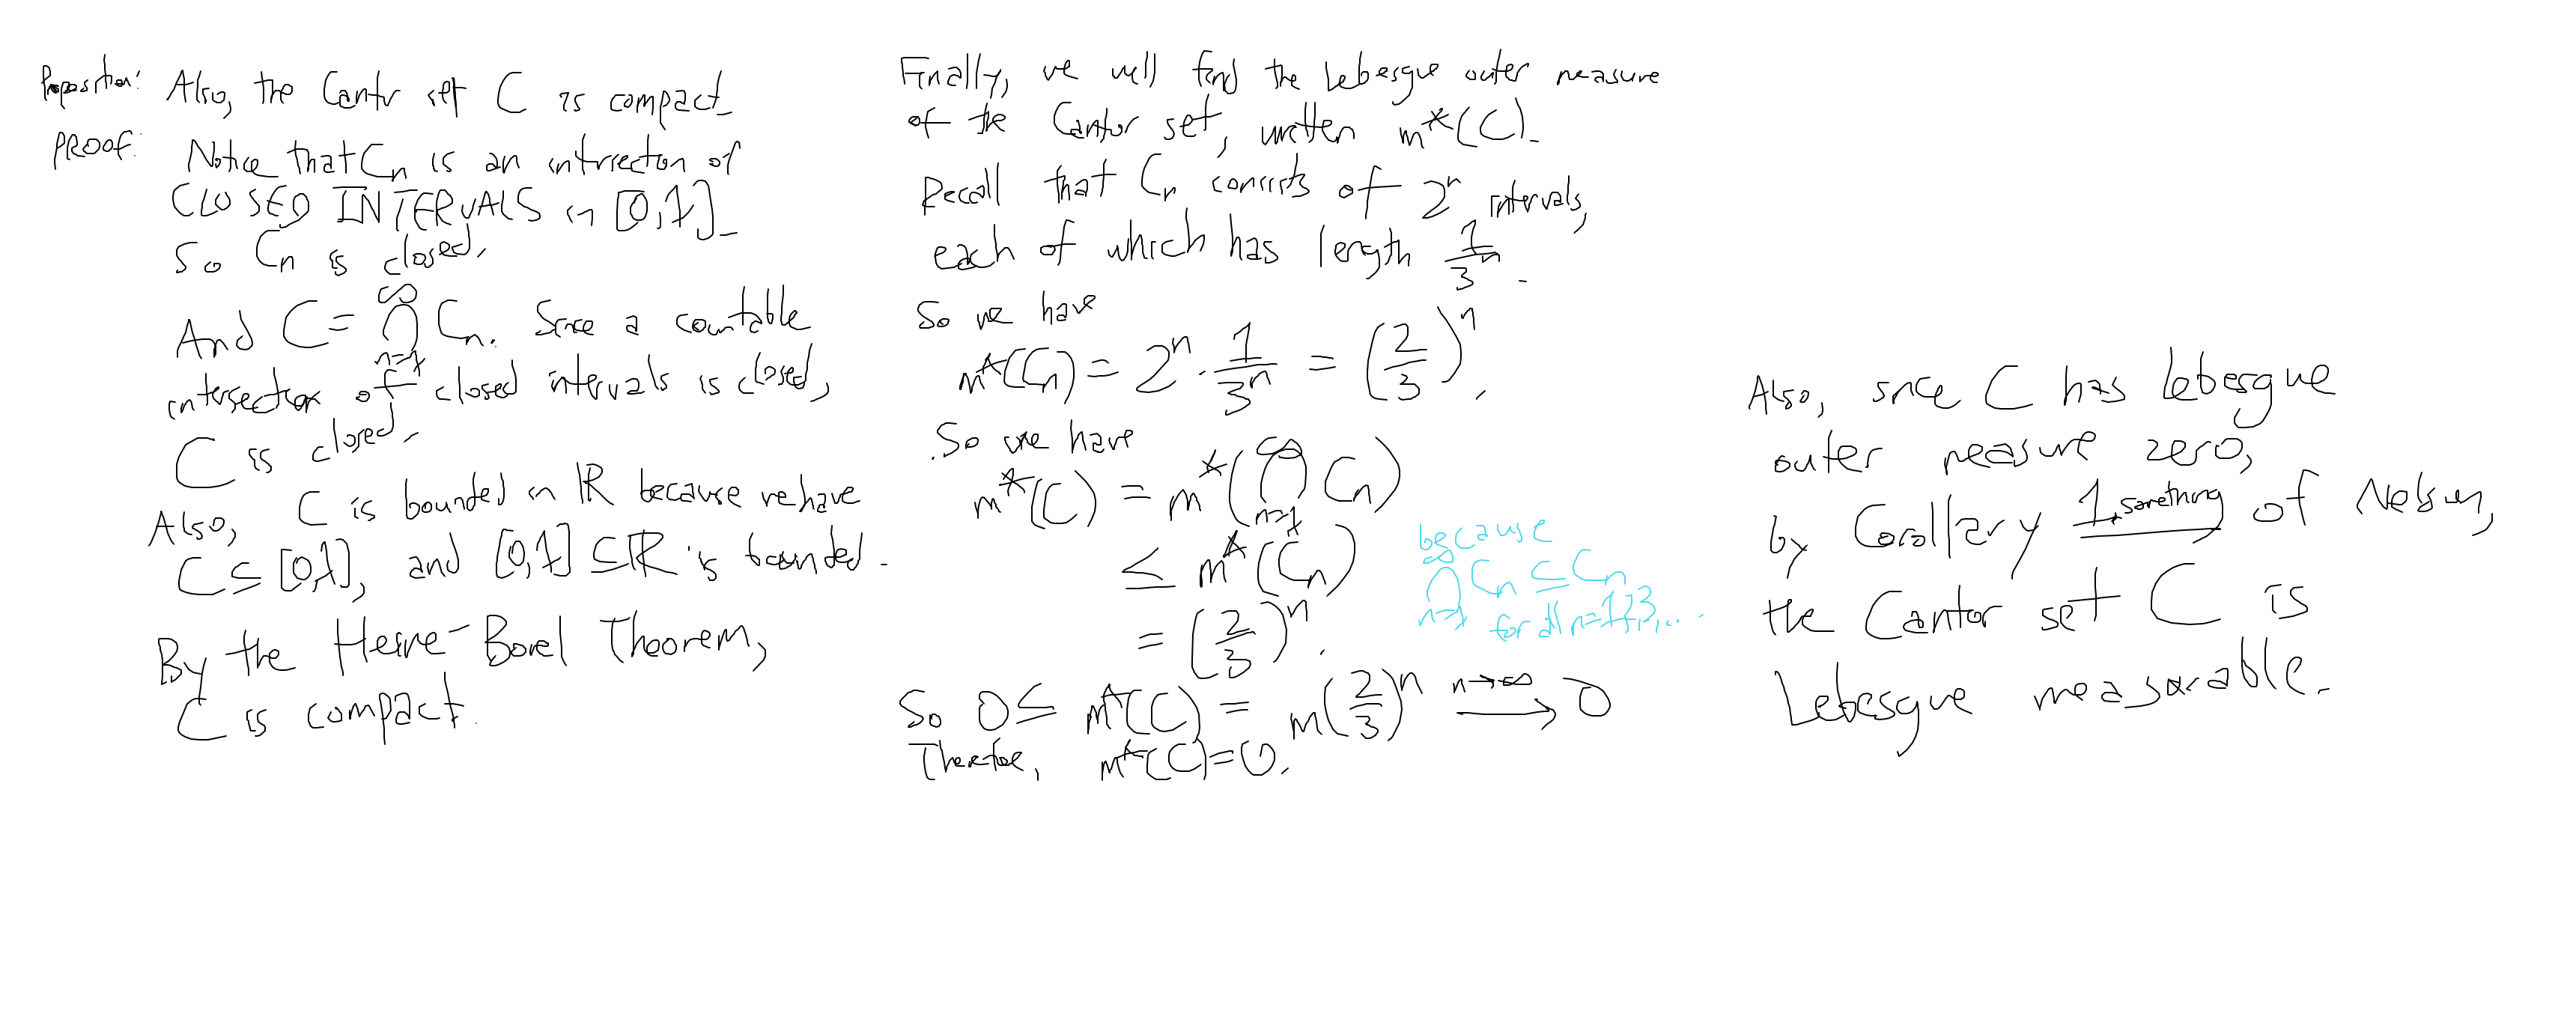 Proposition: Also, the Cantor set C is compact.
PROOF: Notice that Cn is an intersection of
CLOSED INTERVALS in [0,1].
So Cn is closed.
And C = ∞⋂n=1 Cn. Since a countable
intersection of closed intervals is closed,
C is closed.
Also, C is bounded in ℝ because we have
C ⊆ [0,1], and [0,1] ⊆ ℝ is bounded.
By the Heine-Borel Theorem,
C is compact.
Finally, we will find the Lebesgue outer measure
of the Cantor set, written m*(C).
Recall that Cn consists of 2^n intervals,
each of which has length 1/3^n.
So we have
m*(Cn) = 2^n · 1/3^n = (2/3)^n.
So we have
m*(C) = m*(∞⋂n=1 Cn)
≤ m*(Cn)
= (2/3)^n.
because
∞⋂n=1 Cn ⊆ Cn
for all n=1,2,3,...
So 0 ≤ m*(C) = m(2/3)^n n→∞ ⟶ 0
Therefore, m*(C)=0.
Also, since C has Lebesgue
outer measure zero,
by Corollary 1.something of Nelson,
the Cantor set C is
Lebesgue measurable.